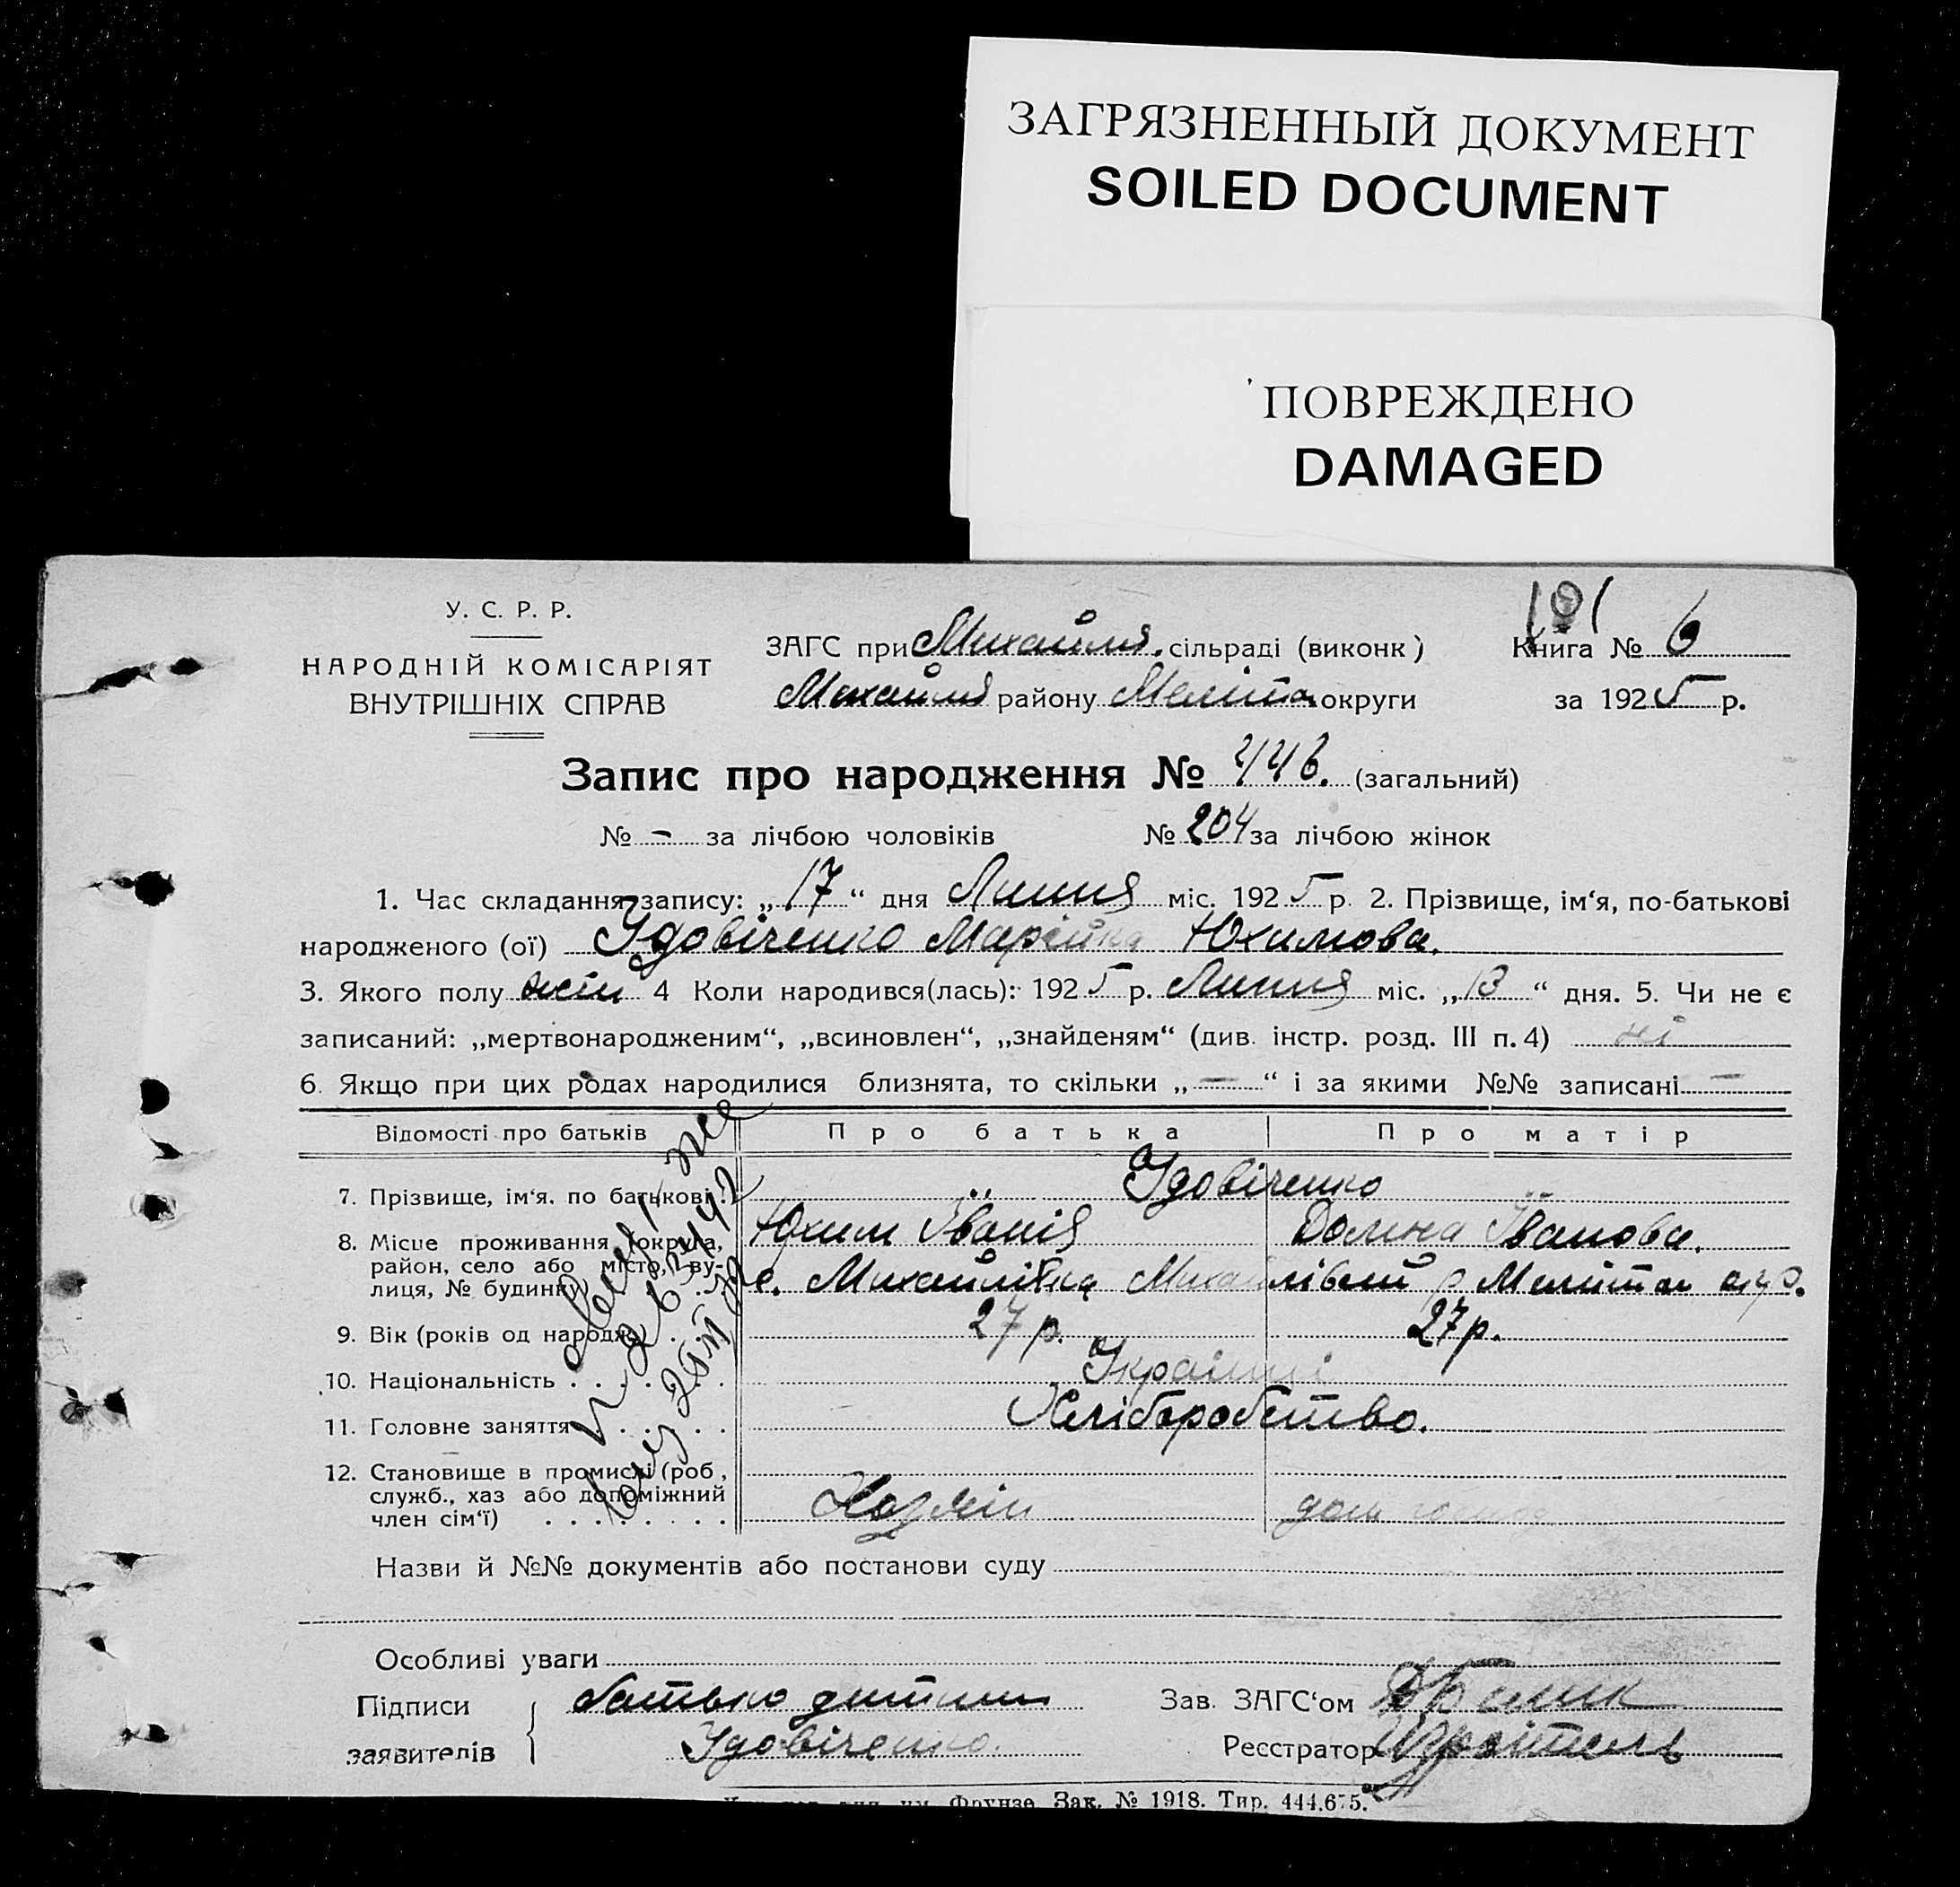 ЗАГРЯЗНЕННЫЙ ДОКУМЕНТ
SOILED DOCUMENT
ПОВРЕЖДЕНО
DAMAGED
У. С. Р. Р.
НАРОДНІЙ КОМІСАРІЯТ
ВНУТРІШНІХ СПРАВ
ЗАГС при Михайлів. сільраді (виконк)
Михайлів району Меліто округи
Книга № 6
за 1925 р.
Запис про народження № 446. (загальний)
№ – за лічбою чоловіків № 204 за лічбою жінок
1. Час складання запису: „17“ дня Липня міс. 1925 р. 2. Прізвище, ім‘я, по-батькові
народженого (ої) Удовіченко Марійка Юхимова.
3. Якого полу жін 4 Коли народився(лась): 1925 р. Липня міс. „13“ дня. 5. Чи не є
записаний: „мертвонародженим“, „всиновлен“, „знайденям“ (див. інстр. розд. III п. 4) ні
6. Якщо при цих родах народилися близнята, то скільки „—“ і за якими №№ записані —
Відомості про батьків Про батька Про матір
7. Прізвище, ім‘я. по батькові Удовіченко
Юхим Іванів Іванова.
8. Місце проживання (округа,
район, село або місто, ву-
лиця, № будинку) с. Михайлівка Михайлівськ р Меліто окр.
9. Вік (років од народж. 27 р. 27 р.
10. Національність Українці
11. Головне заняття Хліборобство.
12. Становище в промислі (роб,
служб., хаз або допоміжний
член сім‘ї) Хозяїн дом господ
Назви й №№ документів або постанови суду
Особливі уваги
Підписи заявителів батько дитини
Удовіченко.
Зав. ЗАГС‘ом
Реєстратор
им. Фрунзе. Зак. № 1918. Тир. 444.675.